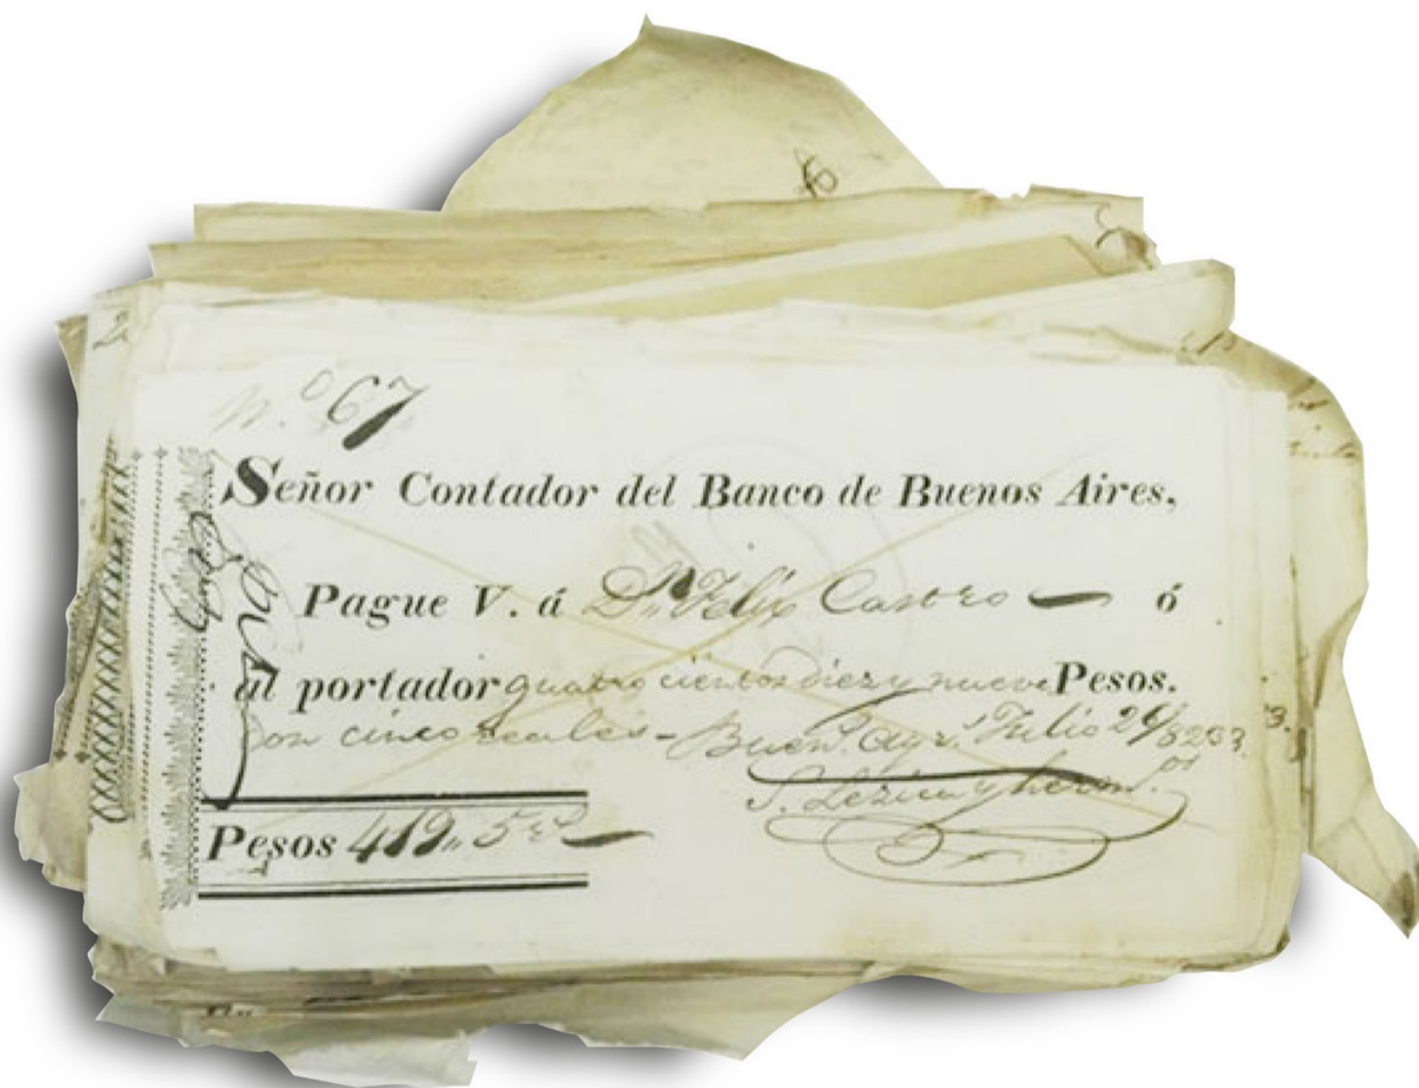 N.º 67
Señor Contador del Banco de Buenos Aires,
Pague V. á Dn Felix Castro — ó
al portador quatro cientos diez y nueve Pesos.
con cinco reales - Buen.s Ay.s Julio
S. Lezica y herm.os
Pesos 419,, 5 rs